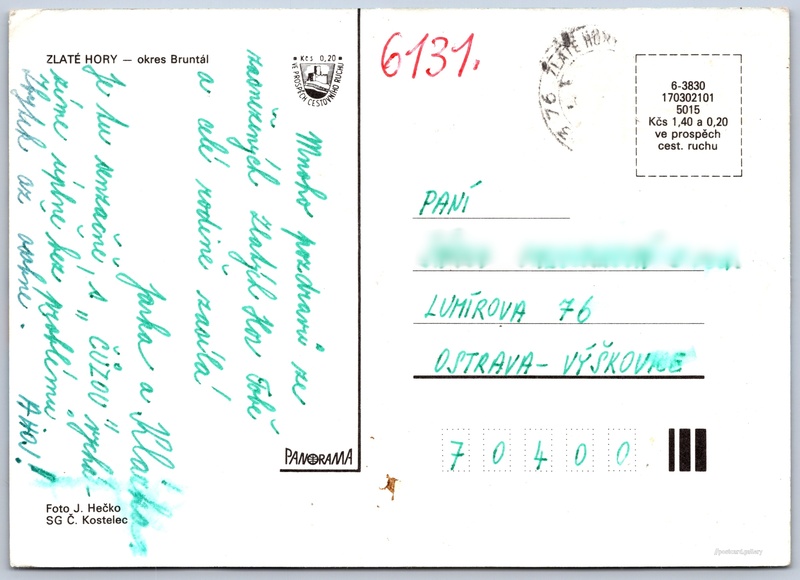 ZLATÉ HORY — okres Bruntál
Kčs 0,20
VE PROSPĚCH CESTOVNÍHO RUCHU
Mnoho pozdravů ze
zasněžených Zlatých Hor Tobě
a celé rodině zasílá
Jarka a
Je tu senzačně, s "ČÚZOU" vychá-
zíme úplně bez problémů!
Zbytek až osobně. Ahoj!
Foto J. Hečko
SG Č. Kostelec
PANORAMA
6131.
ZLATÉ HORY
76
6-3830
170302101
5015
Kčs 1,40 a 0,20
ve prospěch
cest. ruchu
PANÍ
LUMÍROVA 76
OSTRAVA - VÝŠKOVICE
70400
postcard.gallery